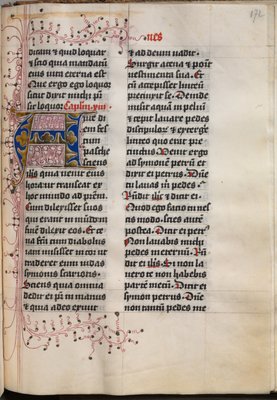 nes
172
dicam & quid loquar
& scio quia mandatū
eius vita eterna est
Que ergo ego loquor
sicut dixit michi pr̄
sic loquor. Caplm xiii
Ante di
em fes
tum
pasche
sciens
ihūs quia venit eius
hora ut transeat ex
hoc mundo ad prēm
Cum dilexisset suos
qui erant in mundo in
finem dilexit eos. Et ce
na fcā cum diabolus
iam misisset in cor ut
traderet eum iudas
symonis scariotis.
Sciens quia omnia
dedit ei pr̄ in manus
& quia a deo exivit
& ad deum vadit.
Surgit a cena & ponit
vestimenta sua. Et
cū accepisset linteū
precinxit se. Deinde
misit aquā in pelvī
& cepit lavare pedes
discipulorꝝ & extergere
linteo quo erat pre
cinctus. Venit ergo
ad symonē petrū et
dixit ei petrus. Dn̄e
tu lavas m̄ pedes.
Rn̄dit ihs & dixit ei.
Quod ego facio tu nes
cis modo. scies autē
postea. Dicit ei petrꝰ
Non lavabis michi
pedes in eternū. Rn̄
dit ei ihs. Si non la
vero te non habebis
partē mecū. Dicit ei
symon petrus. Dn̄e
non tantū pedes me